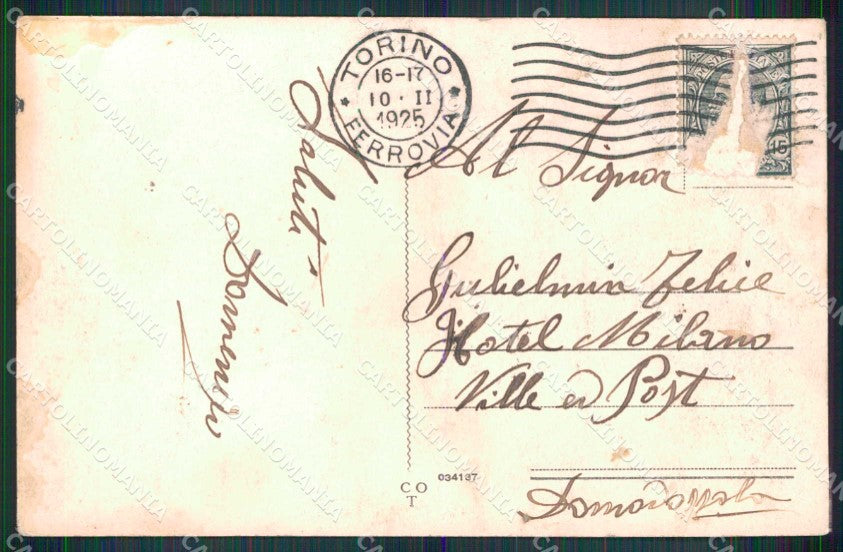 Saluti
TORINO
16-17
10·II
1925
FERROVIA
15
Al Signor
Gulielmin Felice
Hotel Milano
Ville et Post
Domodossola
034137
CO
T
CARTOLINOMANIA